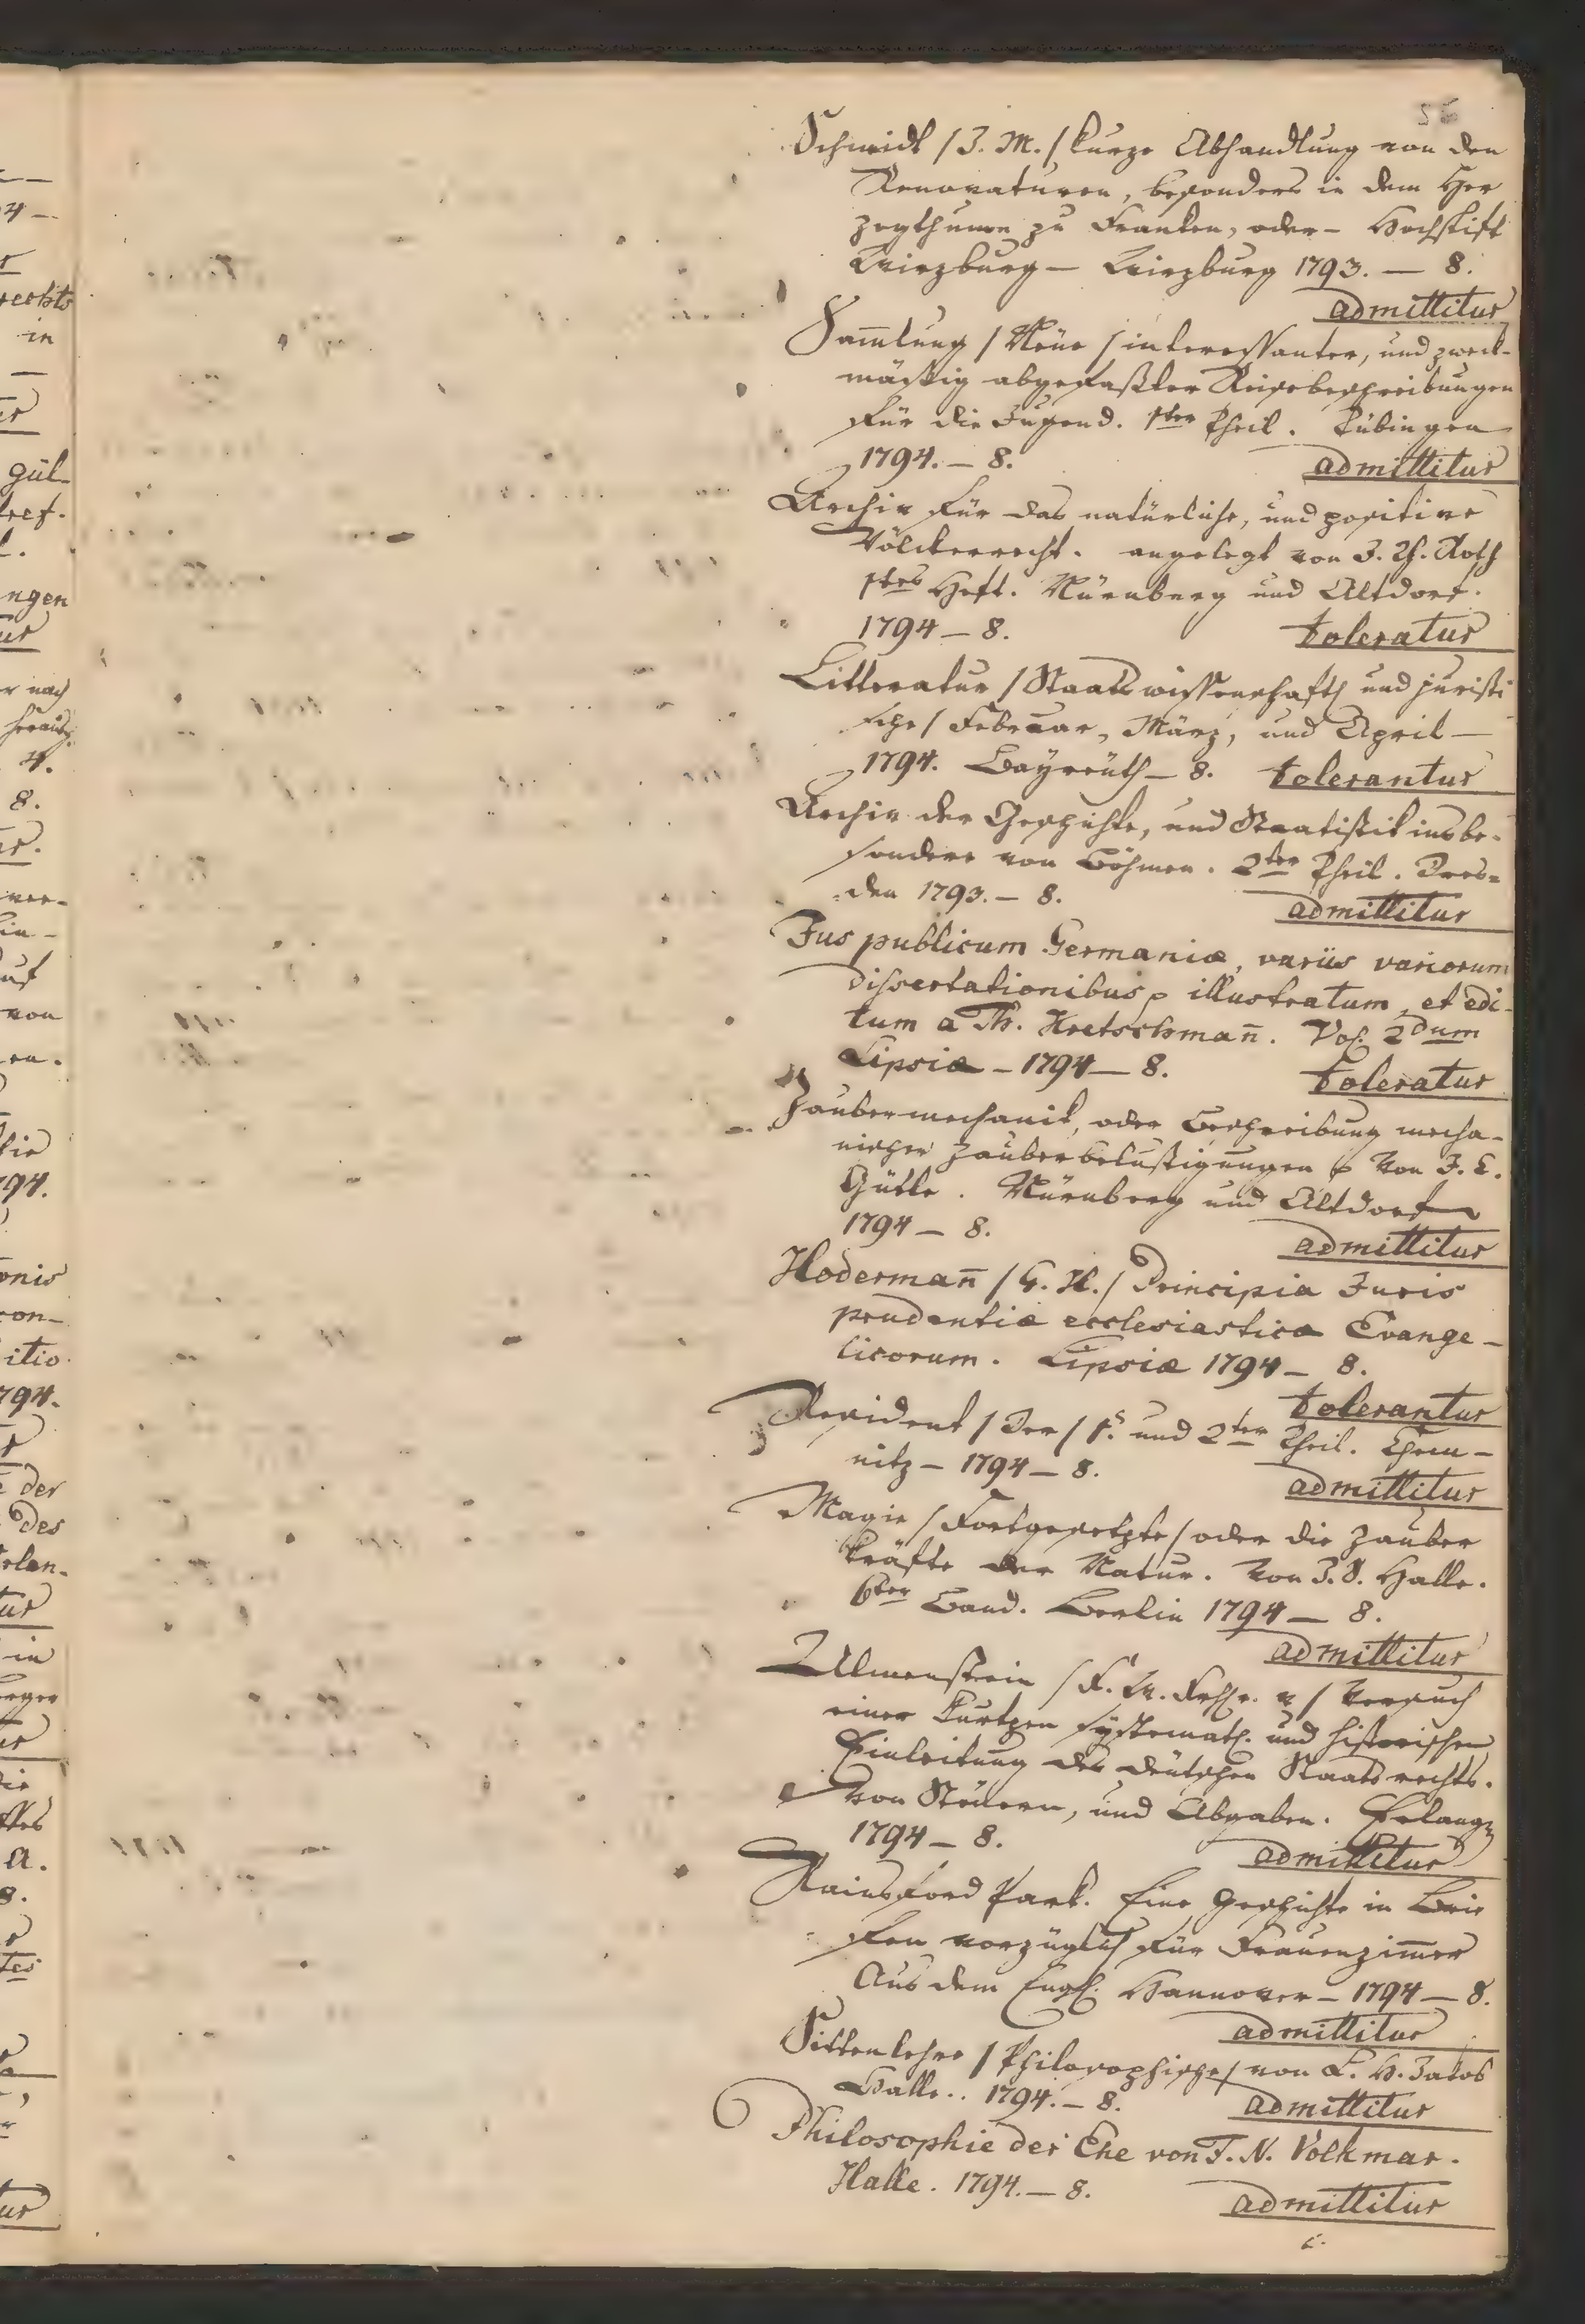 Schmidt / J. M. / kurze Abhandlung von den
Renovaturen, besonders in dem Her
zogthume zu Franken, oder - Hochstift
Wirzburg - Wirzburg 1793. - 8.
admittitur
Sam̄lung / Neüe / interessanter, und zweck-
mäßig abgefaßter Reisebeschreibungen
für die Jugend. 1ter Theil. Tübingen
1794. - 8.
admittitur
Archiv für das natürliche, und positive
Völckerrecht. angelegt von J. Th. Roth
1tes Heft. Nürnberg und Altdorf.
1794 - 8.
toleratur
Litteratur / Staatswissenschaftl und juristi
sche / Februar, März, und April -
1794. Bayreüth - 8. tolerantur
Archiv der Geschichte, und Staatistik insbe-
sondere von Böhmen. 2ter Theil. Dres=
den 1793. - 8.
admittitur
Jus publicum Germaniæ, variis variorum
dissertationibus illustratum, et edi-
tum a Th. Kretschman̄. Vol. 2dum
Lipsiæ - 1794 - 8.
toleratur
Zaubermechanik, oder Beschreibung mecha-
nischer Zauberbelustigungen von J. C.
Gütle. Nürnberg und Altdorf
1794 - 8.
admittitur
Hoderman̄ / G. H. / Principia Juris
prudentiæ ecclesiasticæ Evange-
licorum. Lipsiæ 1794 - 8.
tolerantur
Resident / Der / 1s. und 2ter Theil. Chem-
nitz - 1794 - 8.
admittitur
Magie / Fortgesetzte / oder die Zauber
kräfte der Natur. Von J. S. Halle.
6ter Band. Berlin 1794 - 8.
admittitur
Ulmenstein / F. W. Frhr. v / Versuch
einer kurtzen systemat. und historischen
Einleitung des deütschen Staatsrechts.
Von Steüern, und Abgaben. Erlang
1794 - 8.
admittitur
Rainsford Park. Eine Geschichte in Brie
fen vorzüglich für Frauenzim̄er
Aus dem Engl. Hannover - 1794 - 8.
admittitur
Sittenlehre / Philosophische / von L. H. Jakob
Halle.. 1794. - 8.
admittitur
Philosophie der Ehe von J. N. Volkmar.
Halle. 1794. - 8.
admittitur